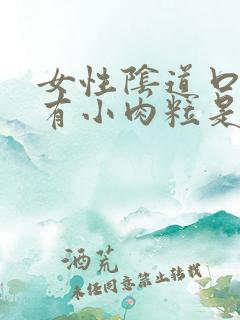 女性陰道口
有小肉粒是
酒荒
未经同意禁止转载